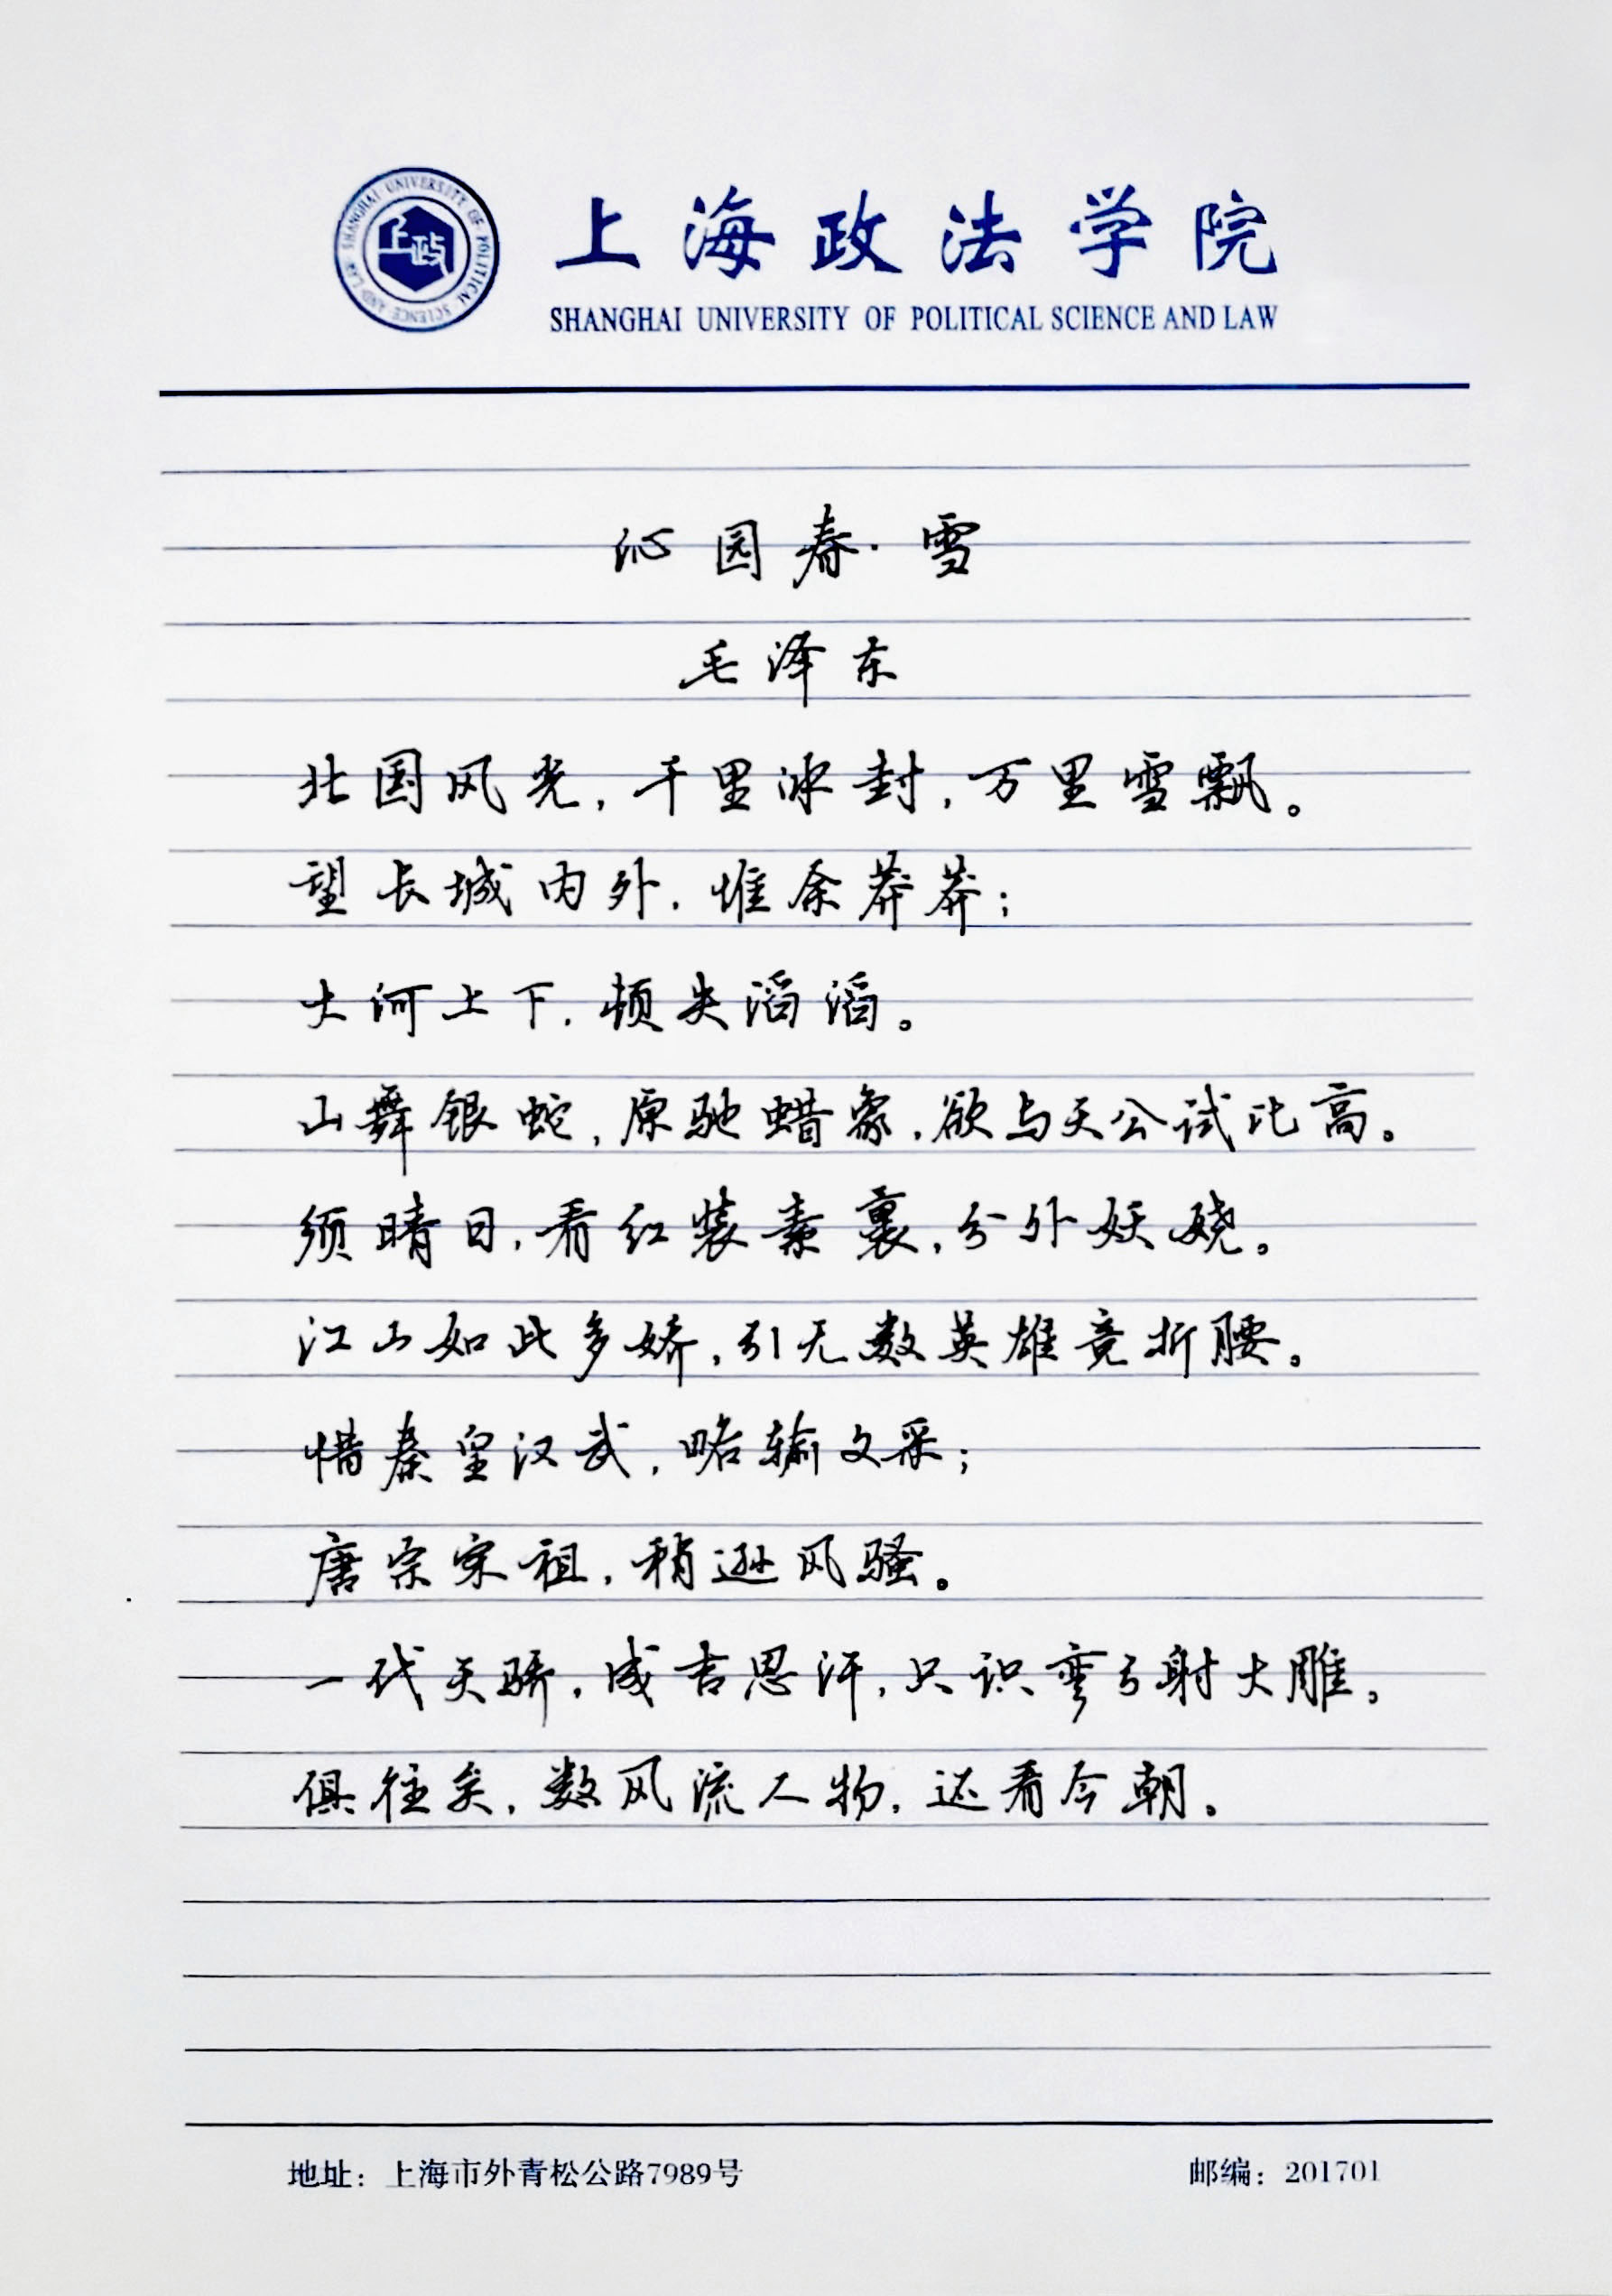 上海政法学院
SHANGHAI UNIVERSITY OF POLITICAL SCIENCE AND LAW
SHANGHAI UNIVERSITY OF POLITICAL SCIENCE AND LAW
上政
沁园春·雪
毛泽东
北国风光,千里冰封,万里雪飘。
望长城内外,惟余莽莽;
大河上下,顿失滔滔。
山舞银蛇,原驰蜡象,欲与天公试比高。
须晴日,看红装素裹,分外妖娆。
江山如此多娇,引无数英雄竞折腰。
惜秦皇汉武,略输文采;
唐宗宋祖,稍逊风骚。
一代天骄,成吉思汗,只识弯弓射大雕。
俱往矣,数风流人物,还看今朝。
地址:上海市外青松公路7989号
邮编:201701